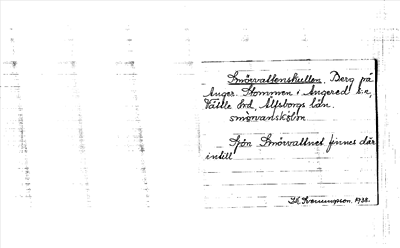 Smörvattenskullen. Berg på
Anger. Stommen i Angered s:n,
Vättle hd, Älfsborgs län.
smörvanskölm
Sjön Smörvattnet finnes där
intill
1938.